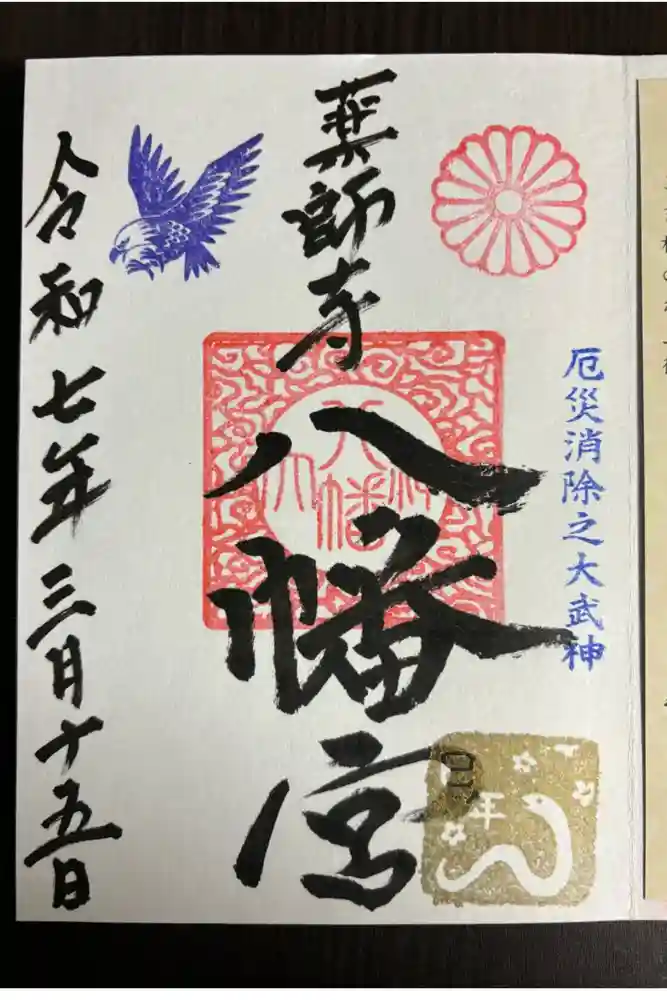 厄災消除之大武神
薬師寺
八幡宮
大八幡神
巳年
令和七年三月十五日